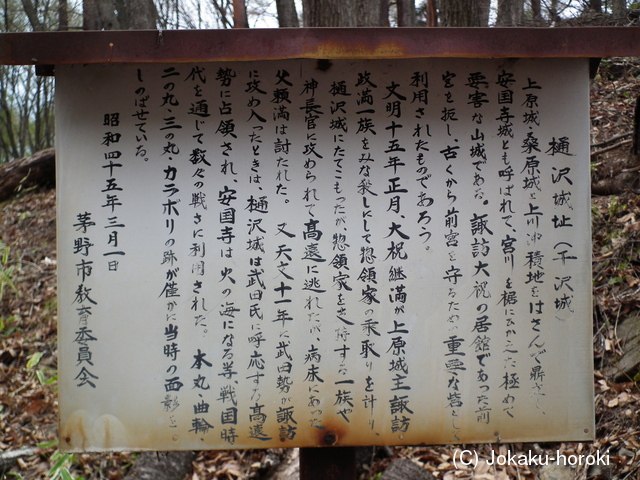 樋沢城址（干沢城）
上原城、桑原城と上川沖積地をはさんで鼎立し、
安国寺城とも呼ばれて、宮川を裾にひかえた極めて
要害な山城である。諏訪大祝の居館であった前
宮を扼し、古くから前宮を守るための重要な砦として
利用されたものであろう。
文明十五年正月、大祝継満が上原城主諏訪
政満一族をみな殺しにして惣領家の乗取りを計り、
樋沢城にたてこもったが惣領家を支持する一族や
神長官に攻められて高遠に逃れたが病床にあった
父頼満は討たれた。又天文十一年に武田勢が諏訪
に攻め入ったときは、樋沢城は武田氏に呼応する高遠
勢に占領され、安国寺は火の海になる等、戦国時
代を通じて数々の戦さに利用された。本丸・曲輪・
二の丸・三の丸・カラボリの跡が僅かに当時の面影を
しのばせている。
昭和四十五年三月一日
茅野市教育委員会
(C)Jokaku-horoki